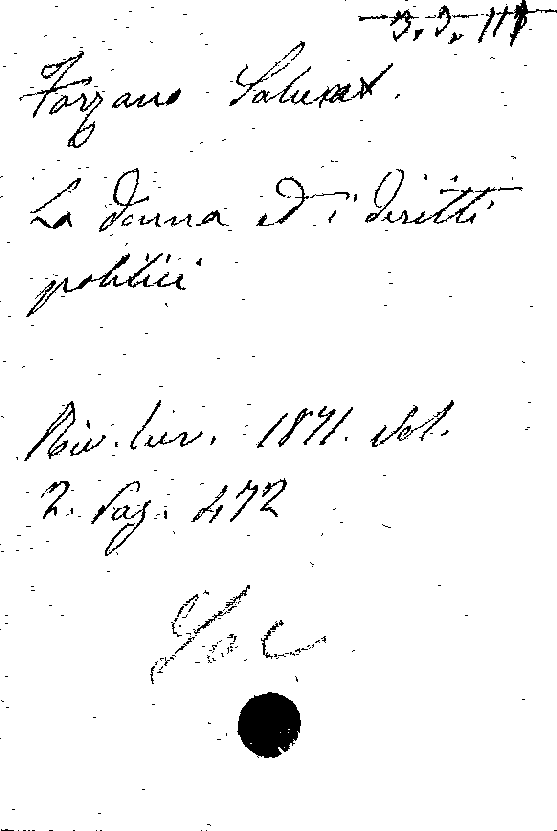 3. 3. 118
Forzano Salvat.
La donna ed i diritti
politici
Riv. lur. 1871. Vol.
2. Pag. 472
Soc